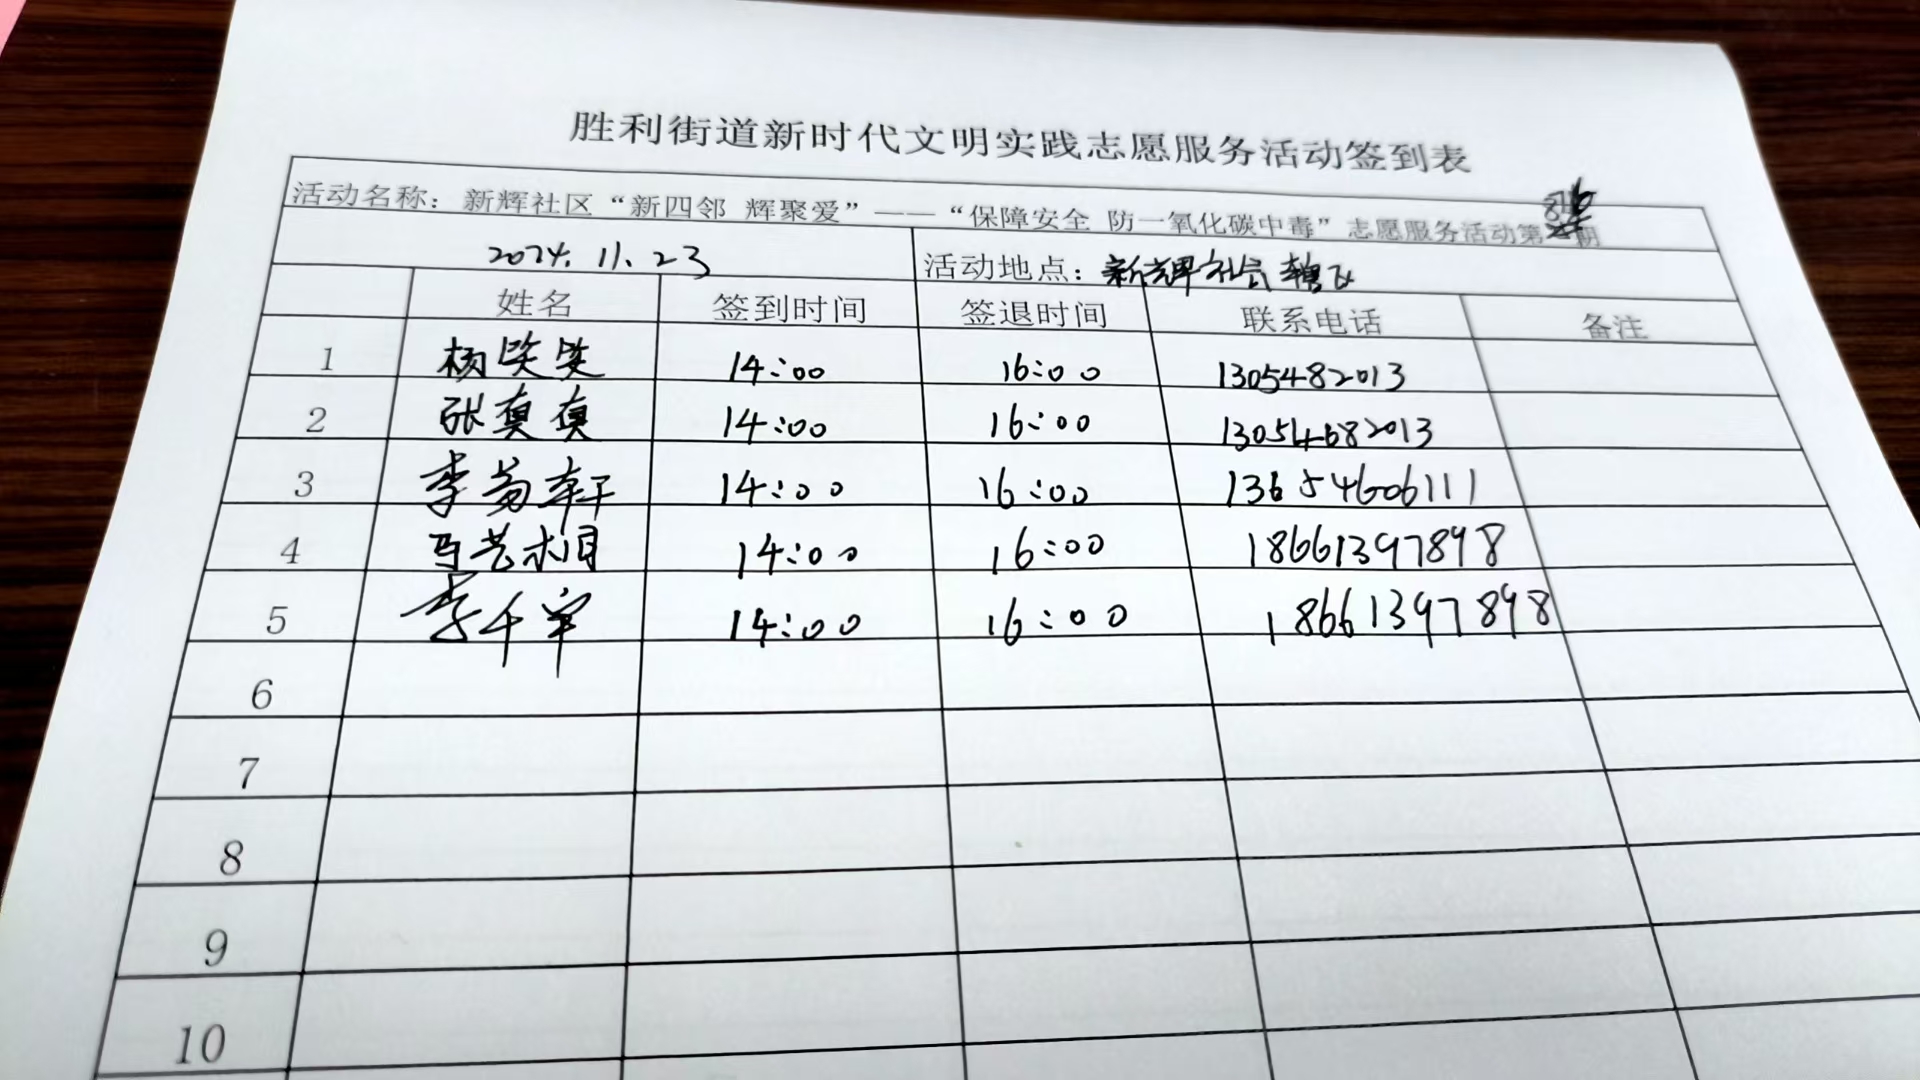 胜利街道新时代文明实践志愿服务活动签到表
活动名称：新辉社区“新四邻 辉聚爱”——“保障安全 防一氧化碳中毒”志愿服务活动第 期
2024.11.23 活动地点：新辉社区辖区
姓名 签到时间 签退时间 联系电话 备注
1 杨笑笑 14:00 16:00 13054682013
2 张真真 14:00 16:00 13054682013
3 李 轩 14:00 16:00 13654606111
4 马艺 14:00 16:00 18661397898
5 李千宇 14:00 16:00 18661397898
6
7
8
9
10